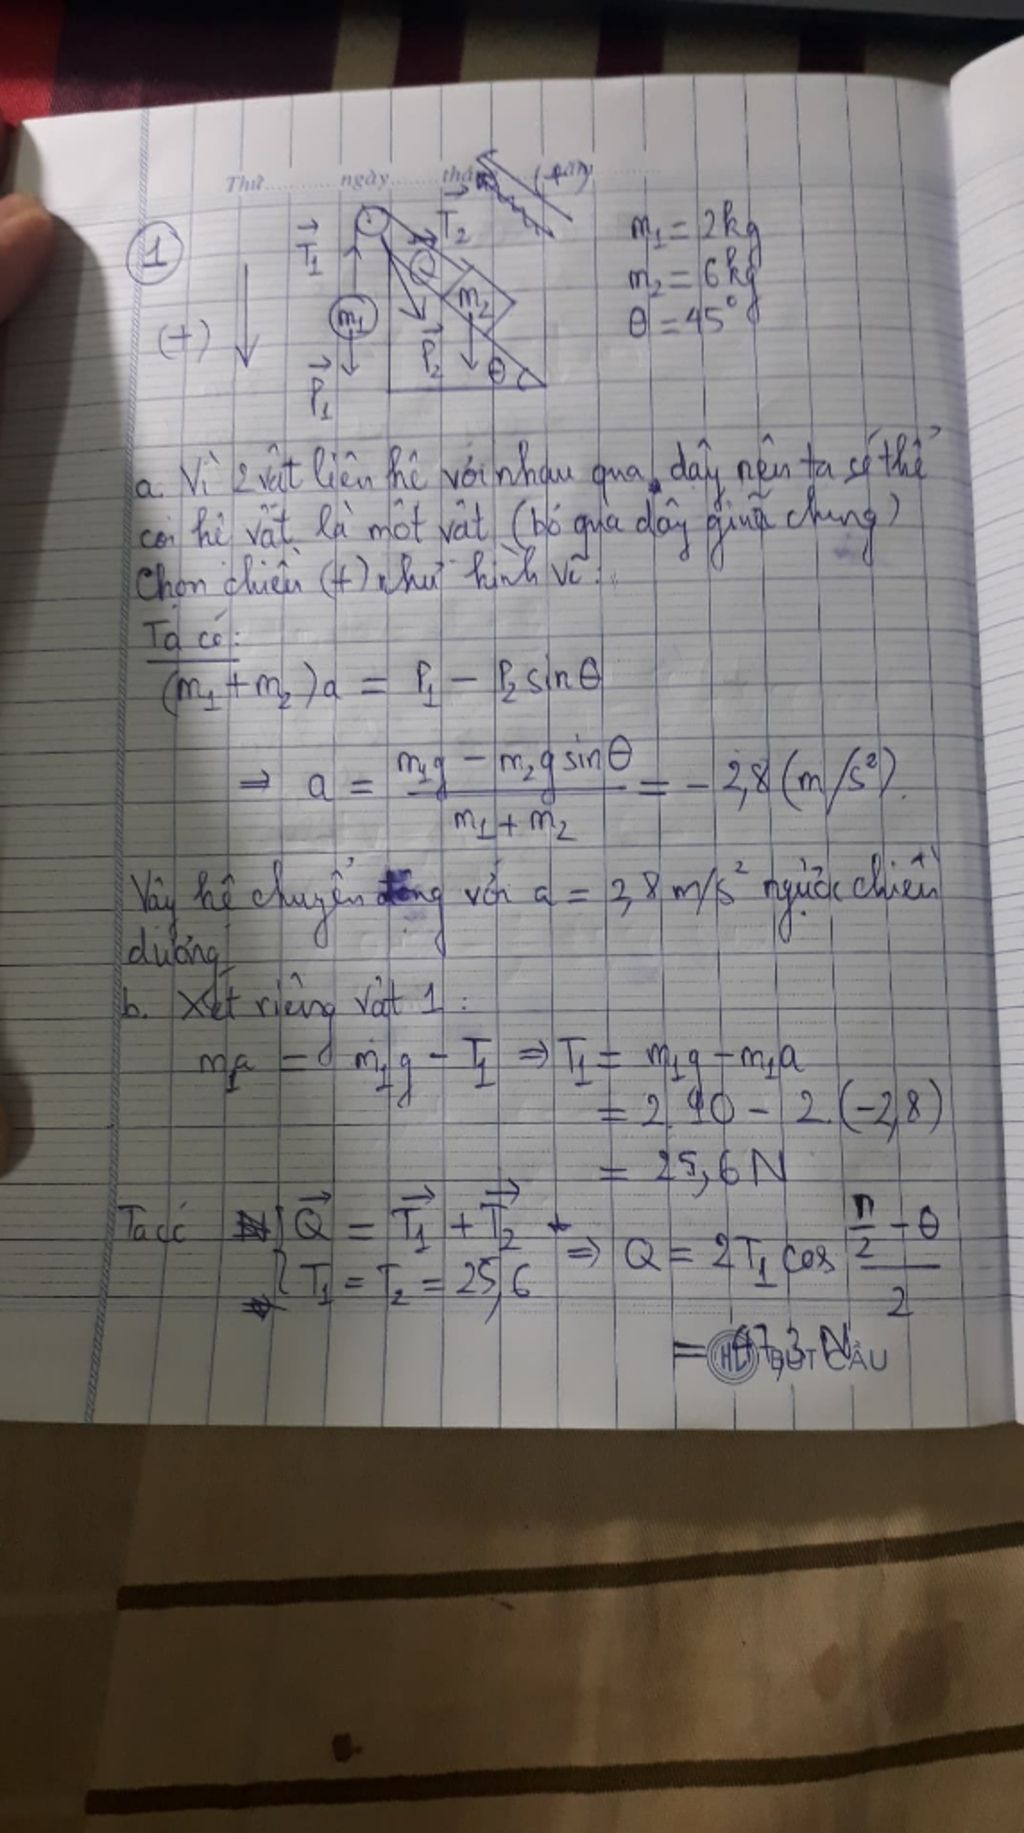 Thứ.......... ngày.......
① T₁ T₂ m₁ = 2kg
m₂ = 6kg
(+) m₁ m₂ θ = 45°
P₁ P₂ θ
a. Vì 2 vật liên hệ với nhau qua dây nên ta có thể
coi hệ vật là một vật (bỏ qua dây giữa chúng)
Chọn chiều (+) như hình vẽ.
Ta có:
(m₁ + m₂)a = P₁ − P₂ sinθ
⇒ a = (m₁g − m₂g sinθ)/(m₁ + m₂) = − 2,8 (m/s²).
Vậy hệ chuyển động với a = 2,8 m/s² ngược chiều
dương
b. Xét riêng vật 1 :
m₁a = m₁g − T₁ ⇒ T₁ = m₁g − m₁a
= 2.10 − 2.(−2,8)
= 25,6 N
Ta có { Q = T₁ + T₂ ⇒ Q = 2T₁ cos (π/2 − θ)/2
T₁ = T₂ = 25,6
= 47,3 N
BÚT CẦU